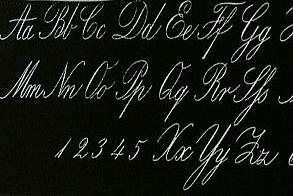 Aa Bb Cc Dd Ee Ff Gg
Mm Nn Oo Pp Qq Rr Ss
1 2 3 4 5 Xx Yy Zz